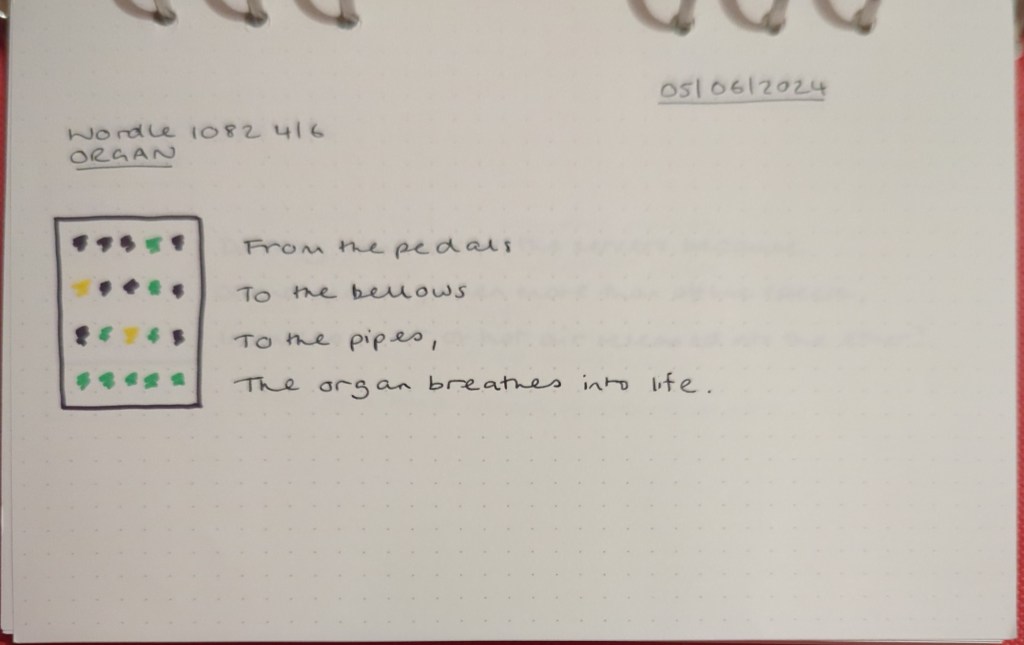 05/06/2024
Wordle 1082 4/6
ORGAN
From the pedals
To the bellows
To the pipes,
The organ breathes into life.